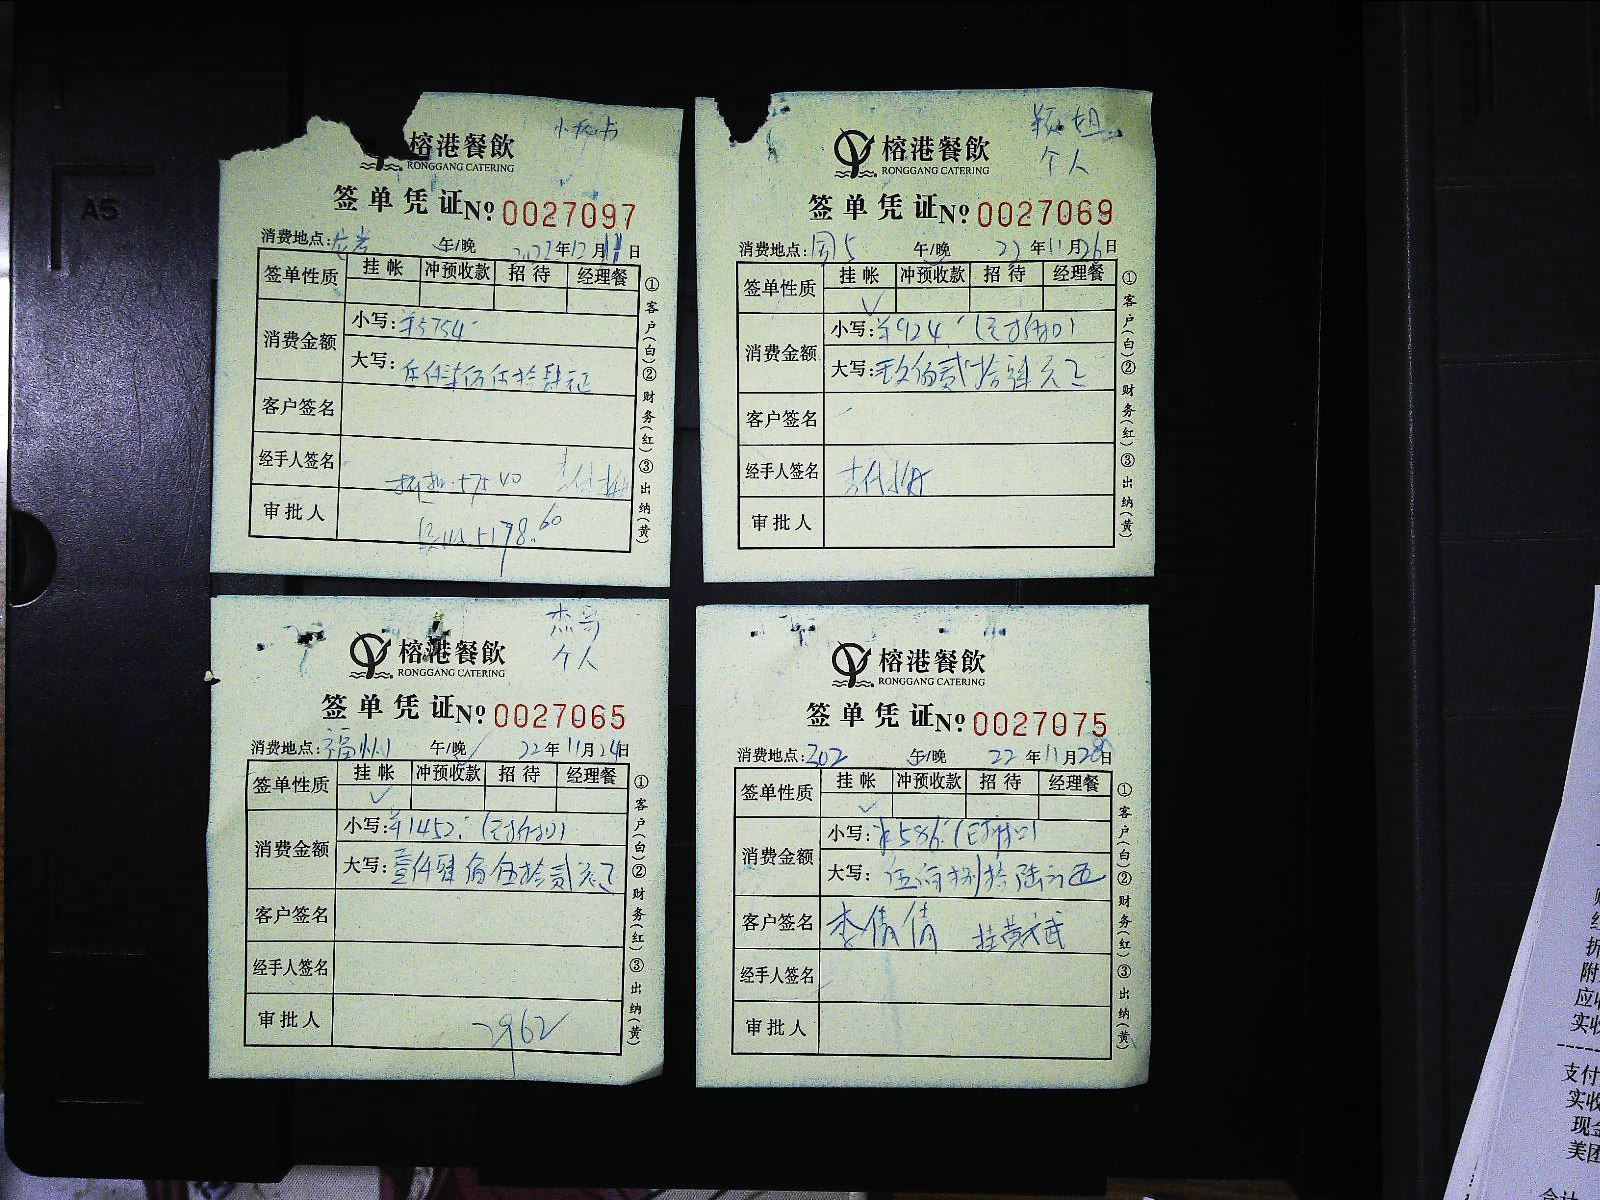 榕港餐飲
RONGGANG CATERING
签单凭证 No 0027097
消费地点: 午/晚 2022年12月11日
签单性质 挂帐 冲预收款 招待 经理餐
消费金额 小写:¥5754
大写: 伍仟柒佰伍拾肆元正
客户签名
经手人签名 575.40
审批人 5178.60
①客户(白)②财务(红)③出纳(黄)
个人
榕港餐飲
RONGGANG CATERING
签单凭证 No 0027069
消费地点: 午/晚 22年11月26日
签单性质 挂帐 冲预收款 招待 经理餐
✓
消费金额 小写:¥924
大写:玖佰贰拾肆元正
客户签名
经手人签名
审批人
①客户(白)②财务(红)③出纳(黄)
杰哥
个人
榕港餐飲
RONGGANG CATERING
签单凭证 No 0027065
消费地点:福州1 午/晚 22年11月24日
签单性质 挂帐 冲预收款 招待 经理餐
✓
消费金额 小写:¥1452
大写:壹仟肆佰伍拾贰元正
客户签名
经手人签名
审批人 2962
①客户(白)②财务(红)③出纳(黄)
榕港餐飲
RONGGANG CATERING
签单凭证 No 0027075
消费地点:302 午/晚 22年11月28日
签单性质 挂帐 冲预收款 招待 经理餐
✓
消费金额 小写:¥586
大写: 伍佰捌拾陆元正
客户签名 李倩倩 挂黄文武
经手人签名
审批人
①客户(白)②财务(红)③出纳(黄)
A5
折
附
应收
实收
支付
实收
现金
美团
合计